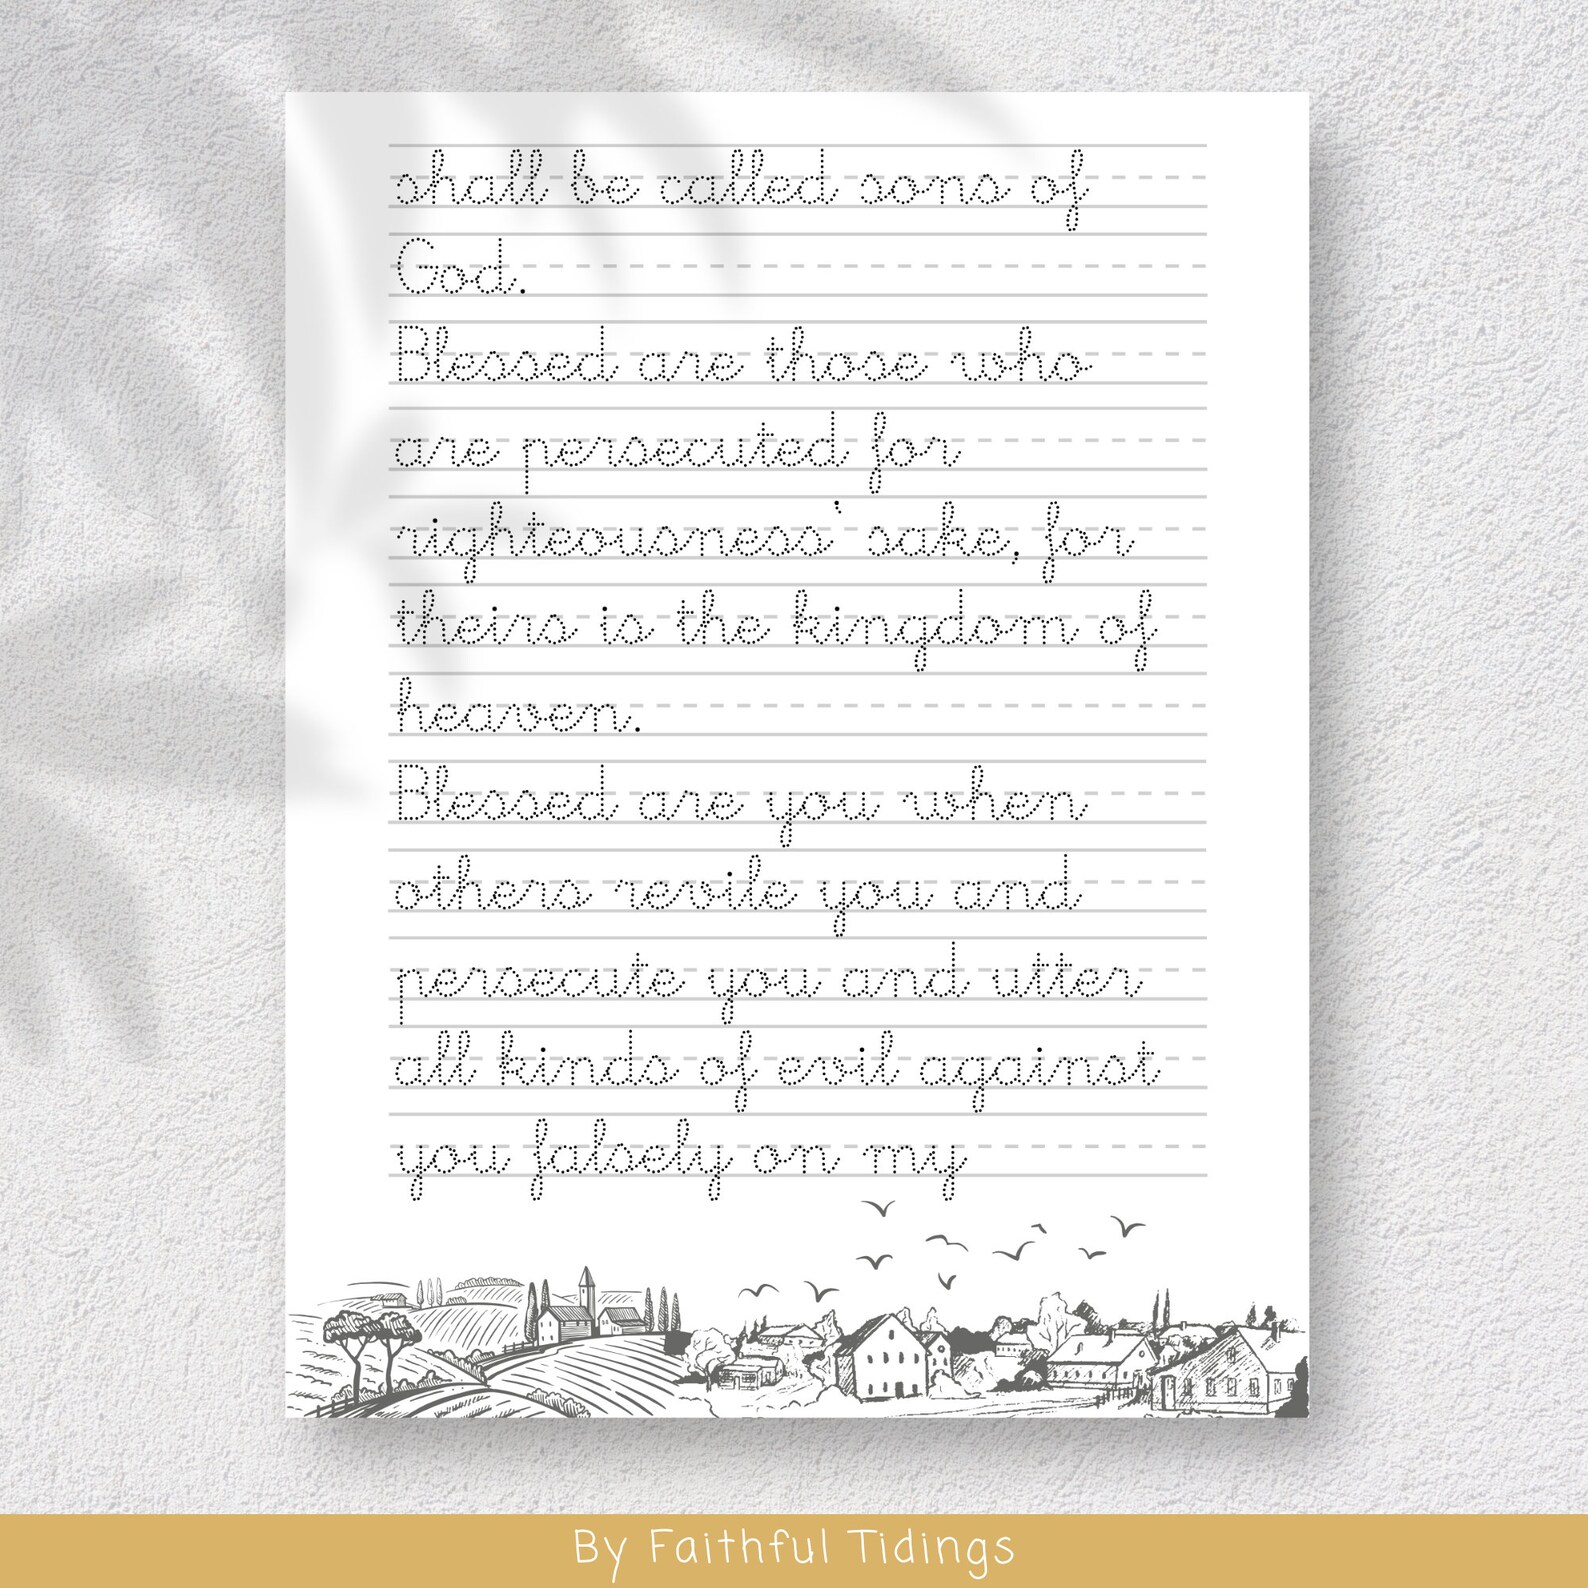 shall be called sons of
God.
Blessed are those who
are persecuted for
righteousness' sake, for
theirs is the kingdom of
heaven.
Blessed are you when
others revile you and
persecute you and utter
all kinds of evil against
you falsely on my
By Faithful Tidings